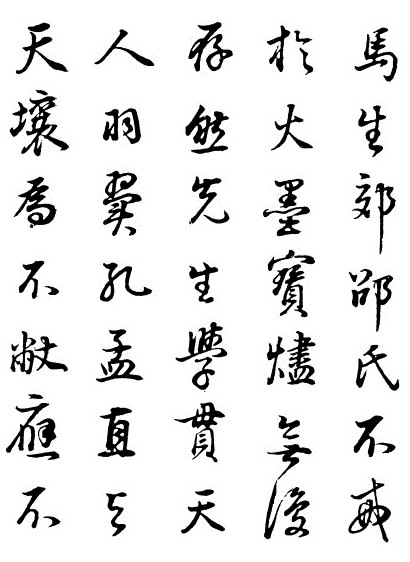 馬生郊邵氏不戒
於火墨寶燼無復
存然先生學貫天
人羽翼孔孟直與
天壤為不敝應不